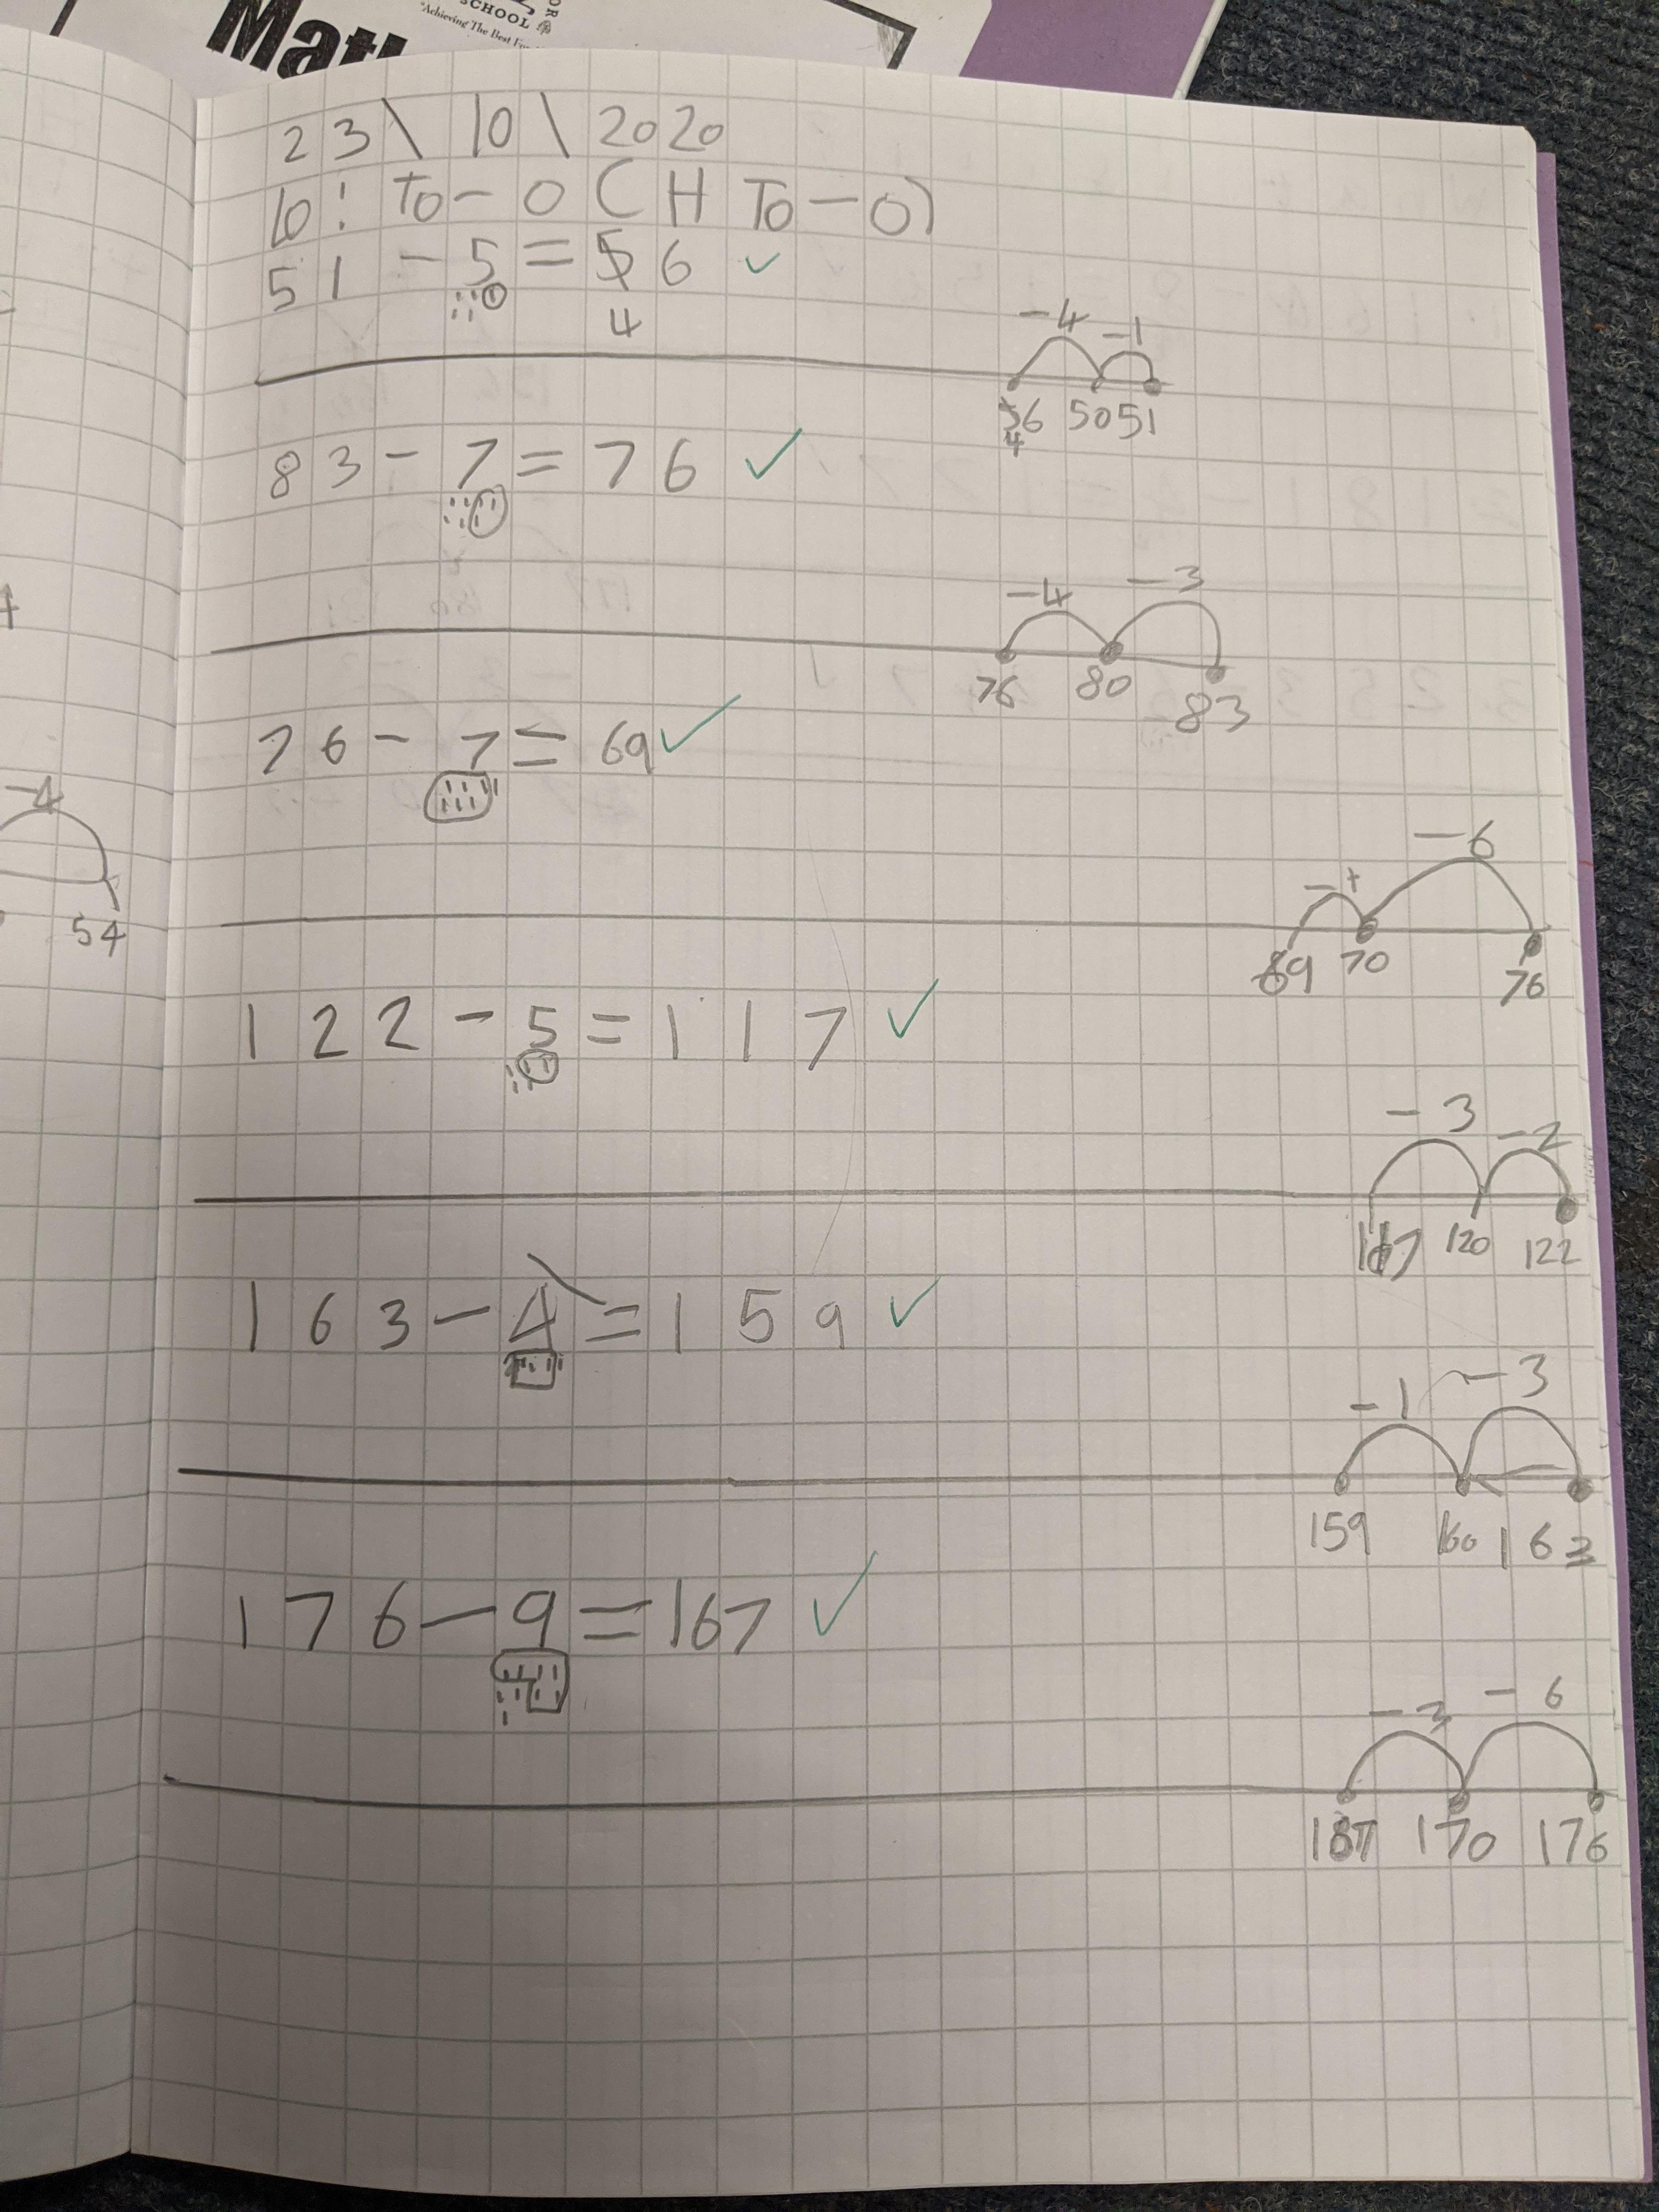 SCHOOL
"Achieving The Best For
OR
Mat
23\10\2020
LO: TO-O (HTO-O)
51 - 5 = 5 6 ✓
4
-4 -1
56 50 51
4
83 - 7 = 76 ✓
-4 -3
76 80 83
76 - 7 = 69 ✓
-6
-1
69 70 76
-4
54
122 - 5 = 117 ✓
-3 -2
117 120 122
163 - 4 = 159 ✓
-1 -3
159 160 163
176 - 9 = 167 ✓
-3 -6
170 176